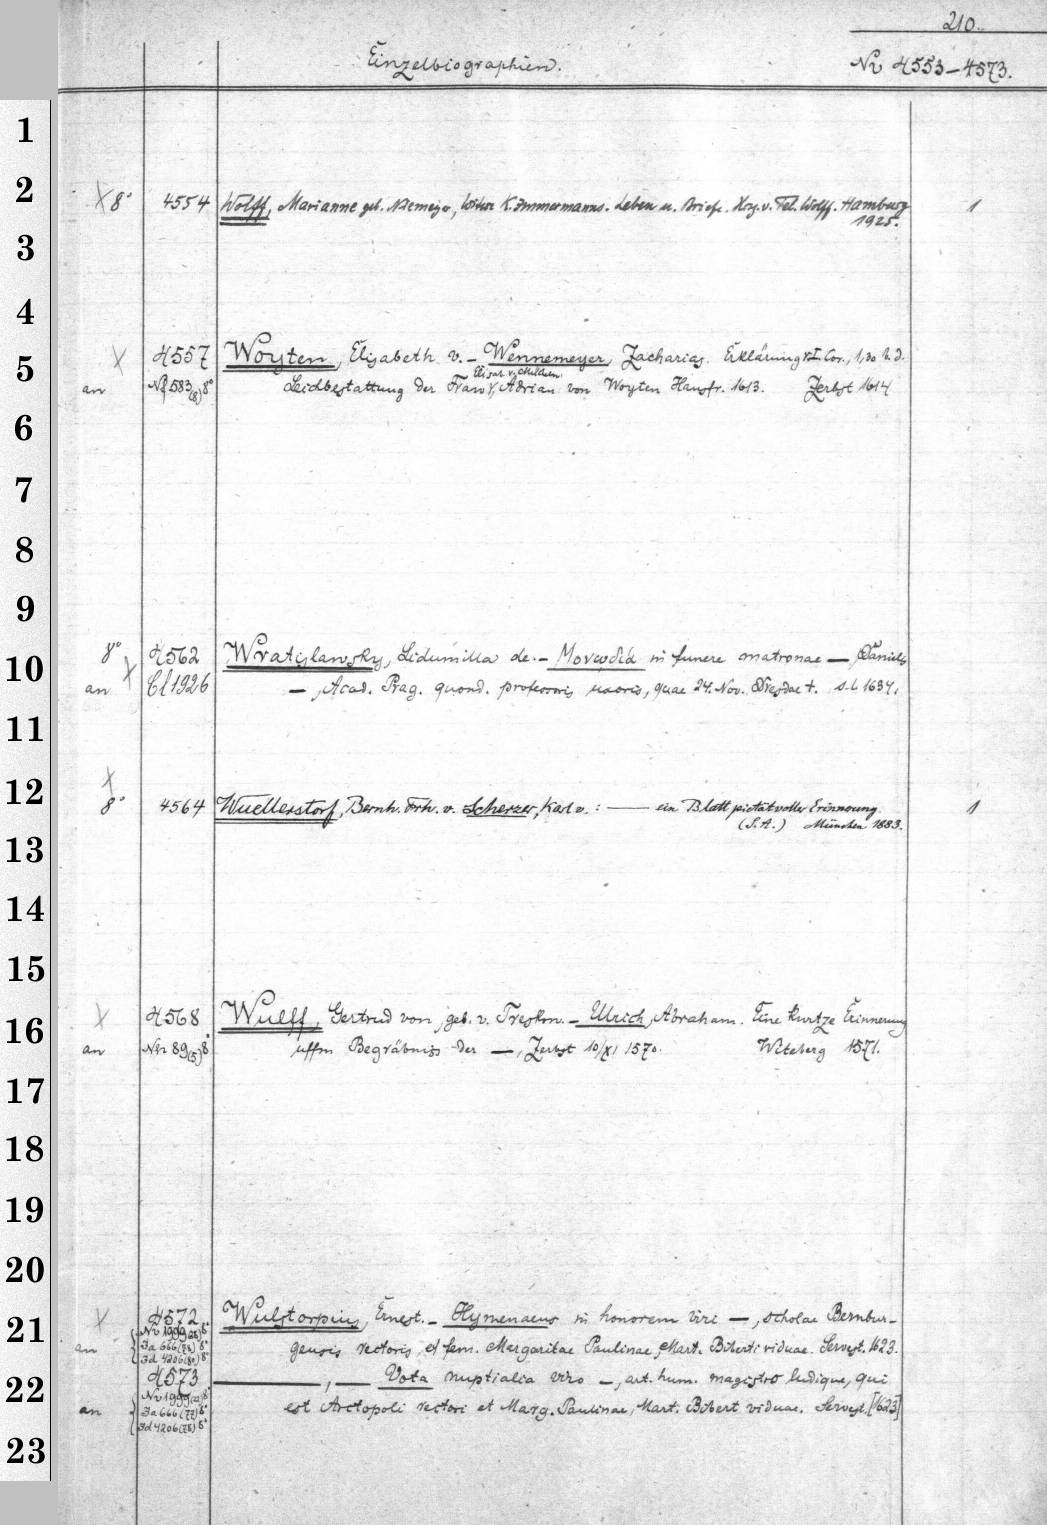 210.
Einzelbiographien.
Nv 4553–4573.
1
2
8° 4554 Wolff, Marianne geb. Niemeyer, Witwe K. Immermanns. Leben u. Briefe. Hrg. v. Fel. Wolff. Hamburg 1
1925.
3
4
5
4557 Woyten, Elisabeth v. – Wennemeyer, Zacharias. Erklärung v. I Cor., 1,30 b. d.
an Nv 583(8) 8° Leidbestattung der Fraw Elisab. v. Mildem, Adrian von Woyten Hausfr. 1613. Zerbst 1614
6
7
8
9
10
8° 4562 Wratislawsky, Lidumilla de. – Μονῳδία in funere matronae —, Daniels
an Cl 1926 —, Acad. Prag. quond. professoris uxoris, quae 24. Nov. Dresdae †. s. l. 1637.
11
12
8° 4564 Wuellerstorf, Bernh. Frh. v. Scherzer, Karl v. : — ein Blatt pietätvoller Erinnerung. 1
(S. A.) München 1883.
13
14
15
16
4568 Wulff, Gertrud von, geb. v. Treskon. – Ullrich, Abraham. Eine kurtze Erinnerung
an Nv 89(5) 8° uffm Begräbniss der —, Zerbst 10/XI 1570. Witeberg 1571.
17
18
19
20
21
4572 Wulstorpius, Ernest. – Hymenaeus in honorem viri —, scholae Bernbur-
an Nv 1999 8° gensis rectoris, et fem. Margaritae Paulinae, Mart. Biberti viduae. Servest. 1623.
Ja 666 8°
Jd 4206 8°
22
4573 —, — Vota nuptialia viro —, art. hum. magistro ludique, qui
an Nv 1999 8° est Arctopoli rectori et Marg. Paulinae, Mart. Bibert viduae. Servest. [1623]
Ja 666 8°
Jd 4206 8°
23